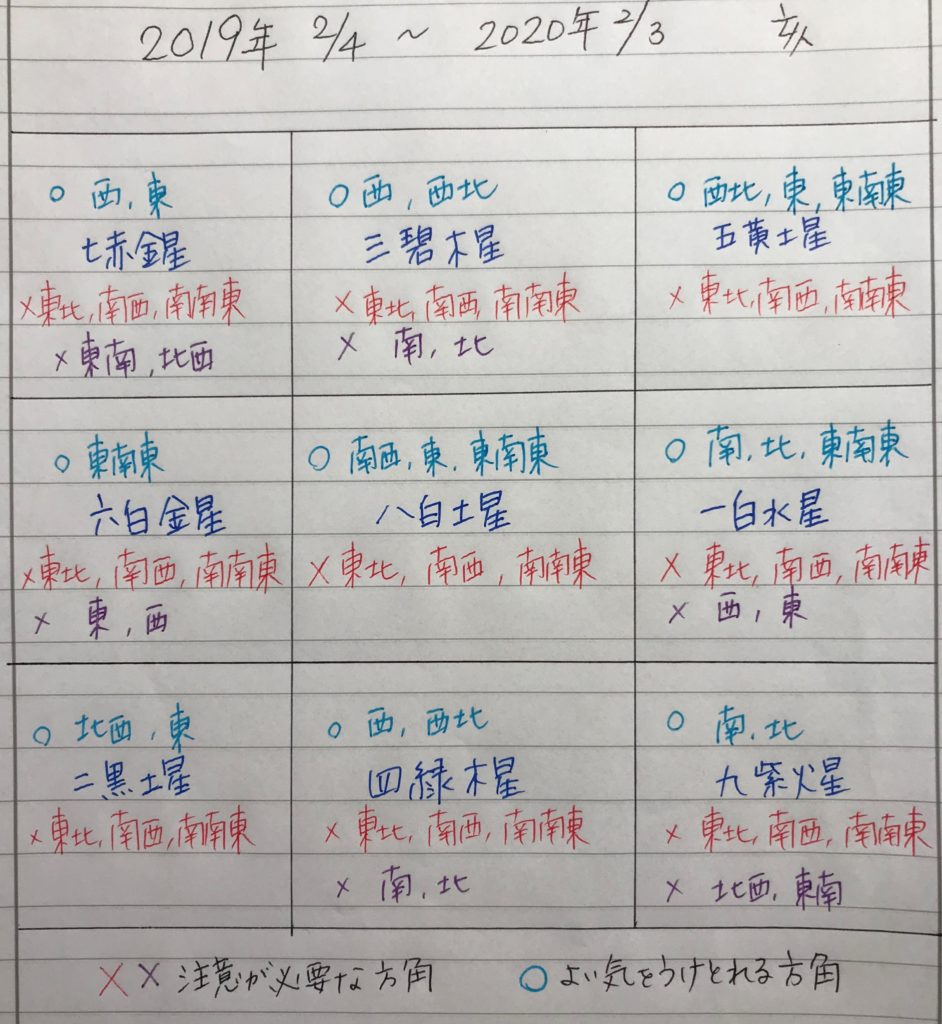 2019年 2/4 ~ 2020年 2/3 亥
○ 西, 東
七赤金星
×東北, 南西, 南南東
× 東南, 北西
○ 西, 西北
三碧木星
× 東北, 南西, 南南東
× 南, 北
○ 西北, 東, 東南東
五黄土星
× 東北, 南西, 南南東
○ 東南東
六白金星
×東北, 南西, 南南東
× 東, 西
○ 南西, 東, 東南東
八白土星
× 東北, 南西, 南南東
○ 南, 北, 東南東
一白水星
× 東北, 南西, 南南東
× 西, 東
○ 北西, 東
二黒土星
×東北, 南西, 南南東
○ 西, 西北
四緑木星
× 東北, 南西, 南南東
× 南, 北
○ 南, 北
九紫火星
× 東北, 南西, 南南東
× 北西, 東南
×× 注意が必要な方角 ○よい気をうけとれる方角